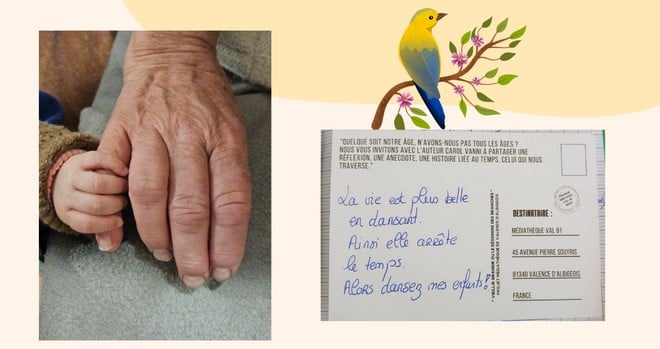 "QUELQUE SOIT NOTRE ÂGE, N'AVONS-NOUS PAS TOUS LES ÂGES ?
NOUS VOUS INVITONS AVEC L'AUTEUR CAROL VANNI À PARTAGER UNE
RÉFLEXION, UNE ANECDOTE, UNE HISTOIRE LIÉE AU TEMPS, CELUI QUI NOUS
TRAVERSE."
La vie est plus belle
en dansant.
Ainsi elle arrête
le temps.
Alors dansez mes enfants !
"VIEILLIR GRANDIR OU LE DÉSORDRE DES BRANCHES"
PROJET MÉDIATHÈQUE DE VALENCE D'ALBIGEOIS
DESTINATAIRE :
MÉDIATHÈQUE VAL 81
45 AVENUE PIERRE SOUYRIS
81340 VALENCE D'ALBIGEOIS
FRANCE